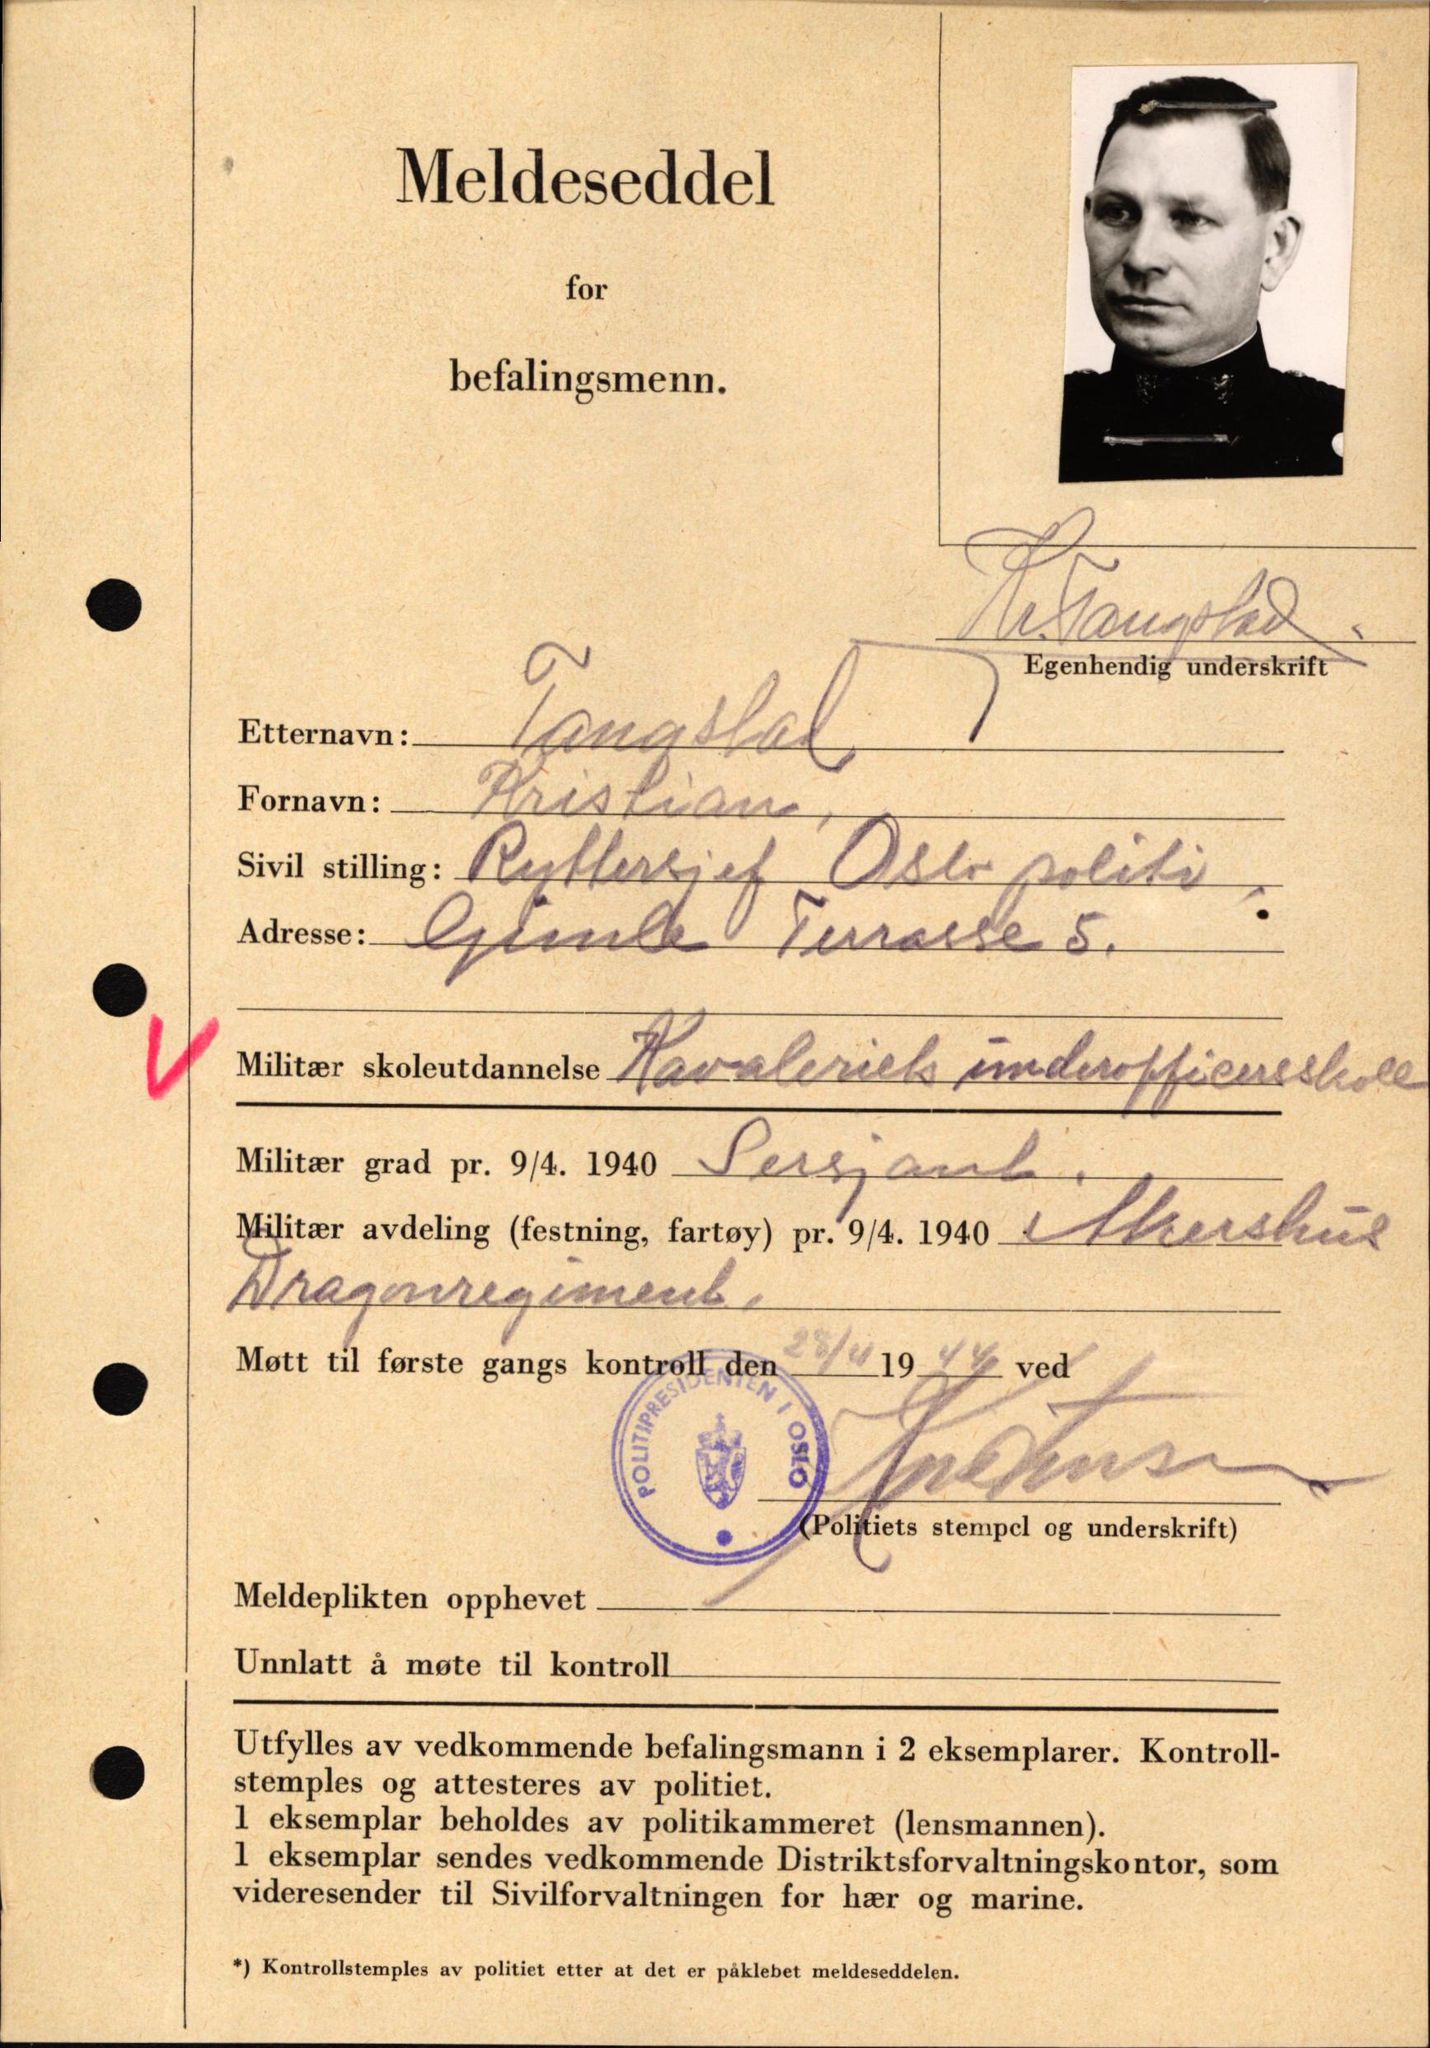 Meldeseddel
for
befalingsmenn.
Kr. Tangstad.
Egenhendig underskrift
Etternavn: Tangstad
Fornavn: Kristian,
Sivil stilling: Ryttersjef Oslo politi,
Adresse: Gimle Terrasse 5.
Militær skoleutdannelse Kavaleriets underofficersskole
Militær grad pr. 9/4. 1940 Sersjant.
Militær avdeling (festning, fartøy) pr. 9/4. 1940 Akershus
Dragonregiment.
Møtt til første gangs kontroll den 1944 ved
POLITIPRESIDENTEN I OSLO
(Politiets stempel og underskrift)
Meldeplikten opphevet
Unnlatt å møte til kontroll
Utfylles av vedkommende befalingsmann i 2 eksemplarer. Kontroll-
stemples og attesteres av politiet.
1 eksemplar beholdes av politikammeret (lensmannen).
1 eksemplar sendes vedkommende Distriktsforvaltningskontor, som
videresender til Sivilforvaltningen for hær og marine.
*) Kontrollstemples av politiet etter at det er påklebet meldeseddelen.